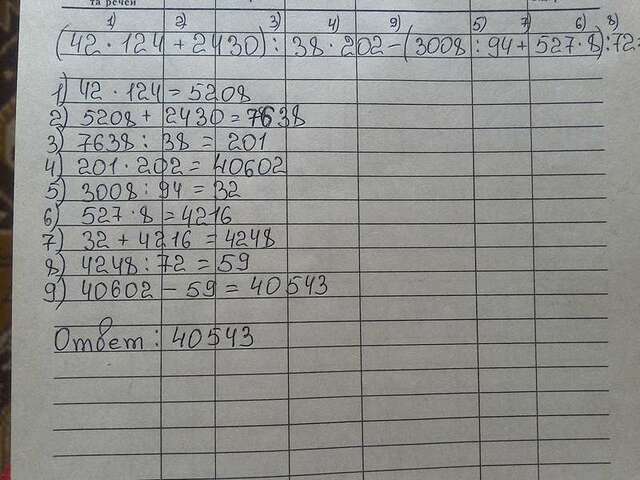 та речен
1) 2) 3) 4) 9) 5) 7) 6) 8)
(42 · 124 + 2430) : 38 · 202 − (3008 : 94 + 527 · 8) : 72 =
1) 42 · 124 = 5208
2) 5208 + 2430 = 7638
3) 7638 : 38 = 201
4) 201 · 202 = 40602
5) 3008 : 94 = 32
6) 527 · 8 = 4216
7) 32 + 4216 = 4248
8) 4248 : 72 = 59
9) 40602 − 59 = 40543
Ответ : 40543